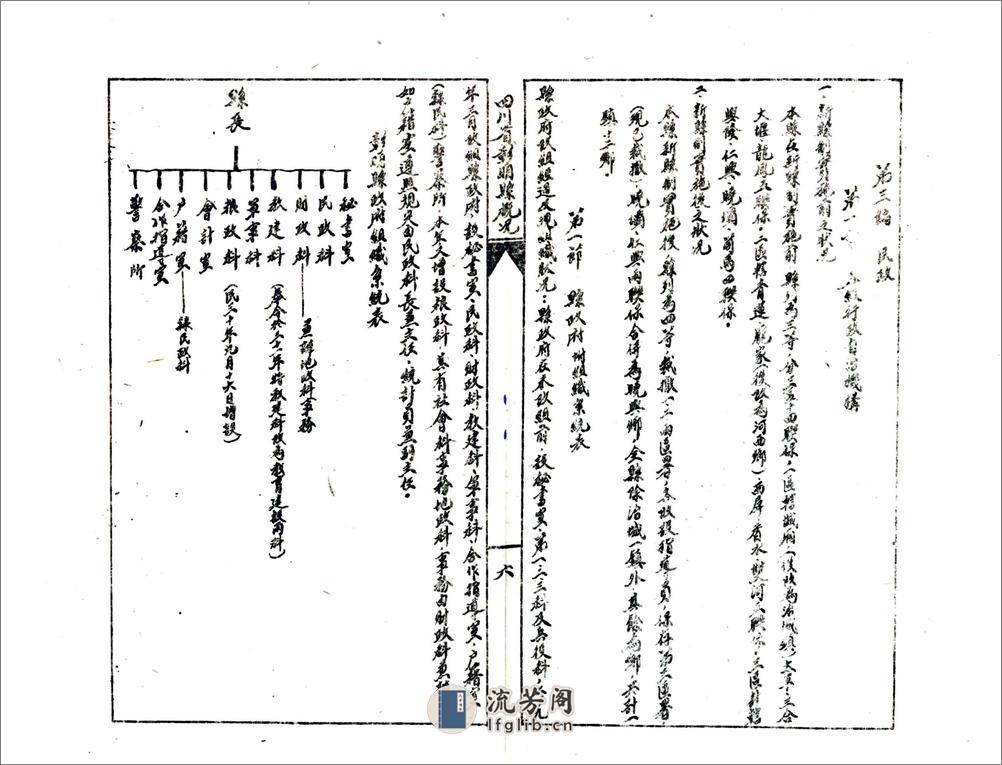 第三編　民政
第一　各級行政自治機構
一、新縣制實施前之狀況
本縣在新縣制實施前，縣列為三等，分三區十四聯保，一區轄城廂（後改為治城鎮），太
大堰、龍鳳五聯保，二區轄青蓮、龐家（後改為河西鄉）、西屏、香水、雙河五聯保，三區轄
興隆、仁興、晚壩、四聯保。
二、新縣制實施後之狀況
本縣新縣制實施後，縣列為四等，裁撤一二兩區署，各改設指導員，保存第三區署，
（現已裁撤）晚壩、仁興兩聯保合併為晚興鄉，全縣除治城一鎮外，其餘為鄉，共計一
鎮十三鄉。
第一節　縣政府附組織系統表
縣政府改組經過及現組織狀況：縣政府在未改組前，設秘書室、第一、二、三科及兵役科，
年三月改組縣政府，設秘書室、民政科、財政科、教建科、軍事科、合作指導室、戶籍室
（隸民政）警察所，本年又增設糧政科，其有社會科事務地政科，事務由財政科兼辦
如戶籍室遵照規定由民政科長兼主任，統計員兼副主任。
彰明縣政府組織系統表
縣長
秘書室
民政科
財政科——兼辦地政科事務
教建科（奉令於三十一年將教建科改為教育建設兩科）
軍事科
糧政科（民三十年九月十六日增設）
會計室
戶籍室——隸民政科
合作指導室
警察所
四川省彰明縣概況
六
流芳阁
lfglib.cn